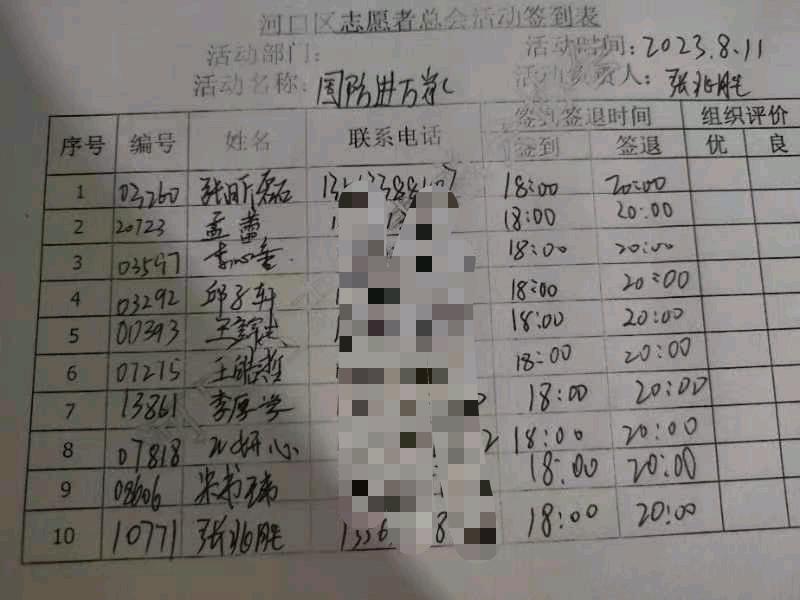 河口区志愿者总会活动签到表
活动部门: 活动时间: 2023.8.11
活动名称: 国防进万家 活动负责人: 张兆胜
序号 编号 姓名 联系电话 签到签退时间 组织评价
签到 签退 优 良
1 03260 张昕磊 18:00 20:00
2 20723 孟蕾 18:00 20:00
3 03597 18:00 20:00
4 03292 邱子轩 18:00 20:00
5 00393 18:00 20:00
6 07275 王皓哲 18:00 20:00
7 13861 李厚学 2 18:00 20:00
8 07818 心 2 18:00 20:00
9 08606 18:00 20:00
10 10771 张兆胜 1326 8 18:00 20:00